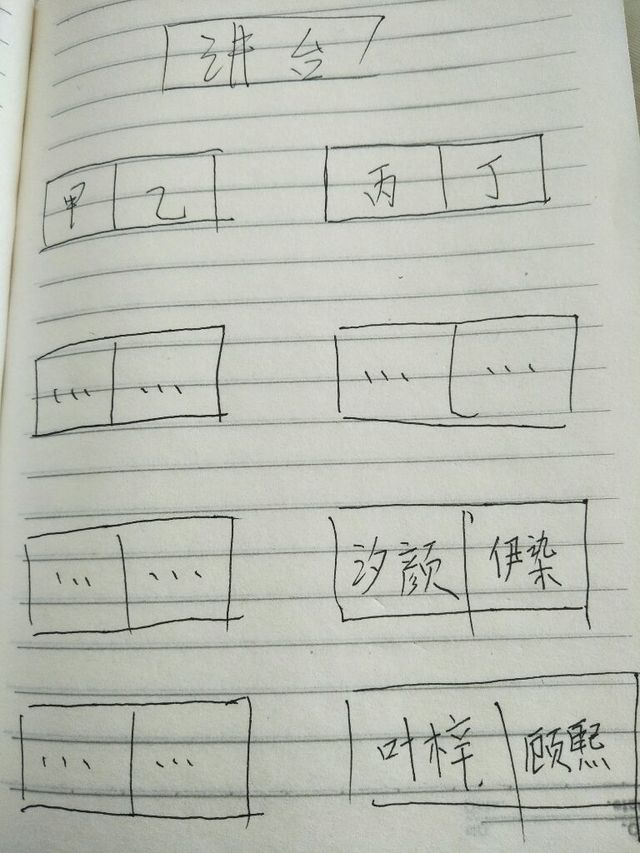 讲台
甲 乙 丙 丁
... ... ... ...
... ... 汐颜 伊染
... ... 叶梓 顾熙